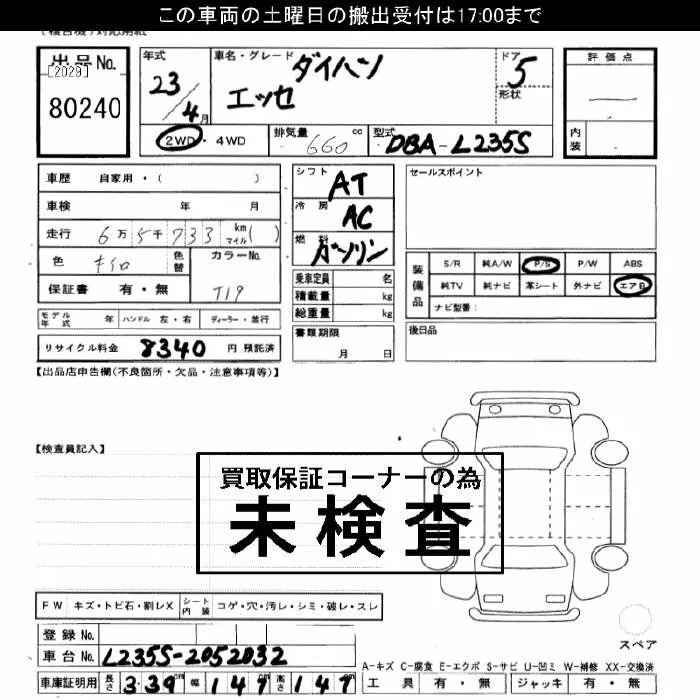 この車両の土曜日の搬出受付は17:00まで
出品No.
[2029]
80240
年式
23/4月
車名・グレード
ダイハツ
エッセ
ドア
5
形状
評価点
内装
2WD・4WD
排気量 660 cc
型式 DBA-L235S
車歴 自家用・( )
車検 年 月
走行 6万5千733 km( ) マイル
色 キイロ 色替
カラーNo. T19
保証書 有・無
モデル年式 年 ハンドル 左・右 ディーラー・並行
リサイクル料金 8340 円 預託済
シフト AT
冷房 AC
燃料 ガソリン
乗車定員 名
積載量 kg
総重量 kg
書類期限
月 日
セールスポイント
装備品
S/R 純A/W P/S P/W ABS
純TV 純ナビ 革シート 外ナビ エアB
ナビ型番:
後日品
【出品店申告欄(不良箇所・欠品・注意事項等)】
【検査員記入】
買取保証コーナーの為
未検査
FW キズ・トビ石・割レX シート内装 コゲ・穴・汚レ・シミ・破レ・スレ
登録No.
車台No. L235S-2052032
車庫証明用 長さ 3.39 cm 幅 147 cm 高さ 147 cm
スペア
A-キズ C-腐食 E-エクボ S-サビ U-凹ミ W-補修 XX-交換済
工具 有・無 ジャッキ 有・無